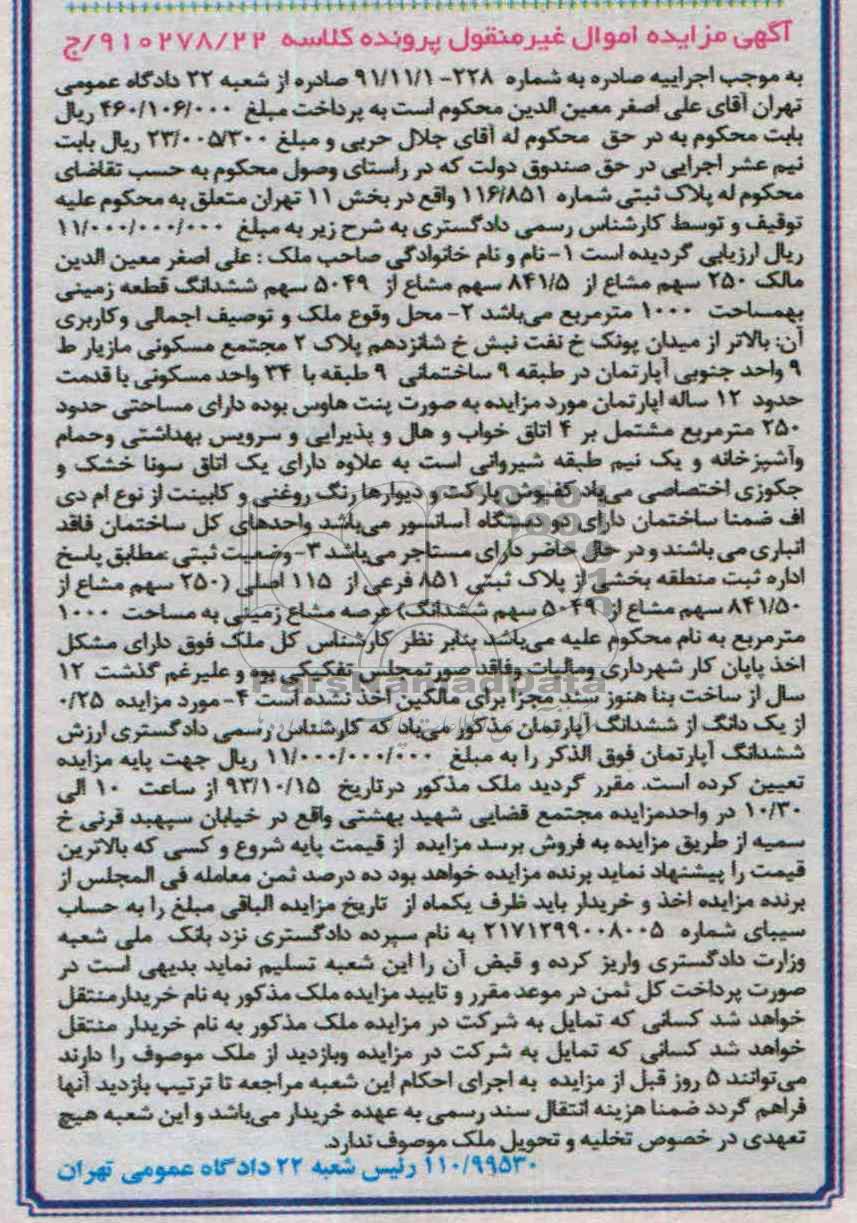 آگهی مزایده اموال غیرمنقول پرونده کلاسه ۹۱۰۲۷۸/۲۲/ج
به موجب اجراییه صادره به شماره ۲۲۸-۹۱/۱۱/۱ صادره از شعبه ۲۲ دادگاه عمومی
تهران آقای علی اصغر معین الدین محکوم است به پرداخت مبلغ ۴۶۰/۱۰۶/۰۰۰ ریال
بابت محکوم به در حق محکوم له آقای جلال حربی و مبلغ ۲۳/۰۰۵/۳۰۰ ریال بابت
نیم عشر اجرایی در حق صندوق دولت که در راستای وصول محکوم به حسب تقاضای
محکوم له پلاک ثبتی شماره ۱۱۶/۸۵۱ واقع در بخش ۱۱ تهران متعلق به محکوم علیه
توقیف و توسط کارشناس رسمی دادگستری به شرح زیر به مبلغ ۱۱/۰۰۰/۰۰۰/۰۰۰
ریال ارزیابی گردیده است ۱- نام و نام خانوادگی صاحب ملک : علی اصغر معین الدین
مالک ۲۵۰ سهم مشاع از ۸۴۱/۵ سهم مشاع از ۵۰۴۹ سهم ششدانگ قطعه زمینی
بهمساحت ۱۰۰۰ مترمربع می‌باشد ۲- محل وقوع ملک و توصیف اجمالی وکاربری
آن: بالاتر از میدان پونک خ نفت نبش خ شانزدهم پلاک ۲ مجتمع مسکونی مازیار ط
۹ واحد جنوبی آپارتمان در طبقه ۹ ساختمانی ۹ طبقه با ۳۴ واحد مسکونی با قدمت
حدود ۱۲ ساله اپارتمان مورد مزایده به صورت پنت هاوس بوده دارای مساحتی حدود
۲۵۰ مترمربع مشتمل بر ۴ اتاق خواب و هال و پذیرایی و سرویس بهداشتی وحمام
وآشپزخانه و یک نیم طبقه شیروانی است به علاوه دارای یک اتاق سونا خشک و
جکوزی اختصاصی می‌باد کفپوش پارکت و دیوارها رنگ روغنی و کابینت از نوع ام دی
اف ضمنا ساختمان دارای دو دستگاه آسانسور می‌باشد واحدهای کل ساختمان فاقد
انباری می باشند و در حال حاضر دارای مستاجر می‌باشد ۳- وضعیت ثبتی :مطابق پاسخ
اداره ثبت منطقه بخشی از پلاک ثبتی ۸۵۱ فرعی از ۱۱۵ اصلی (۲۵۰ سهم مشاع از
۸۴۱/۵۰ سهم مشاع از ۵۰۴۹ سهم ششدانگ) عرصه مشاع زمینی به مساحت ۱۰۰۰
مترمربع به نام محکوم علیه می‌باشد بنابر نظر کارشناس کل ملک فوق دارای مشکل
اخذ پایان کار شهرداری ومالیات وفاقد صورتمجلس تفکیکی بوه و علیرغم گذشت ۱۲
سال از ساخت بنا هنوز سند مجزا برای مالکین اخذ نشده است ۴- مورد مزایده ۰/۲۵
از یک دانگ از ششدانگ آپارتمان مذکور می‌باد که کارشناس رسمی دادگستری ارزش
ششدانگ آپارتمان فوق الذکر را به مبلغ ۱۱/۰۰۰/۰۰۰/۰۰۰ ریال جهت پایه مزایده
تعیین کرده است. مقرر گردید ملک مذکور درتاریخ ۹۳/۱۰/۱۵ از ساعت ۱۰ الی
۱۰/۳۰ در واحدمزایده مجتمع قضایی شهید بهشتی واقع در خیابان سپهبد قرنی خ
سمیه از طریق مزایده به فروش برسد مزایده از قیمت پایه شروع و کسی که بالاترین
قیمت را پیشنهاد نماید برنده مزایده خواهد بود ده درصد ثمن معامله فی المجلس از
برنده مزایده اخذ و خریدار باید ظرف یکماه از تاریخ مزایده الباقی مبلغ را به حساب
سیبای شماره ۲۱۷۱۲۹۹۰۰۸۰۰۵ به نام سپرده دادگستری نزد بانک ملی شعبه
وزارت دادگستری واریز کرده و قبض آن را این شعبه تسلیم نماید بدیهی است در
صورت پرداخت کل ثمن در موعد مقرر و تایید مزایده ملک مذکور به نام خریدارمنتقل
خواهد شد کسانی که تمایل به شرکت در مزایده ملک مذکور به نام خریدار منتقل
خواهد شد کسانی که تمایل به شرکت در مزایده وبازدید از ملک موصوف را دارند
می‌توانند ۵ روز قبل از مزایده به اجرای احکام این شعبه مراجعه تا ترتیب بازدید آنها
فراهم گردد ضمنا هزینه انتقال سند رسمی به عهده خریدار می‌باشد و این شعبه هیچ
تعهدی در خصوص تخلیه و تحویل ملک موصوف ندارد.
۱۱۰/۹۹۵۳۰ رئیس شعبه ۲۲ دادگاه عمومی تهران
ParsNamadData